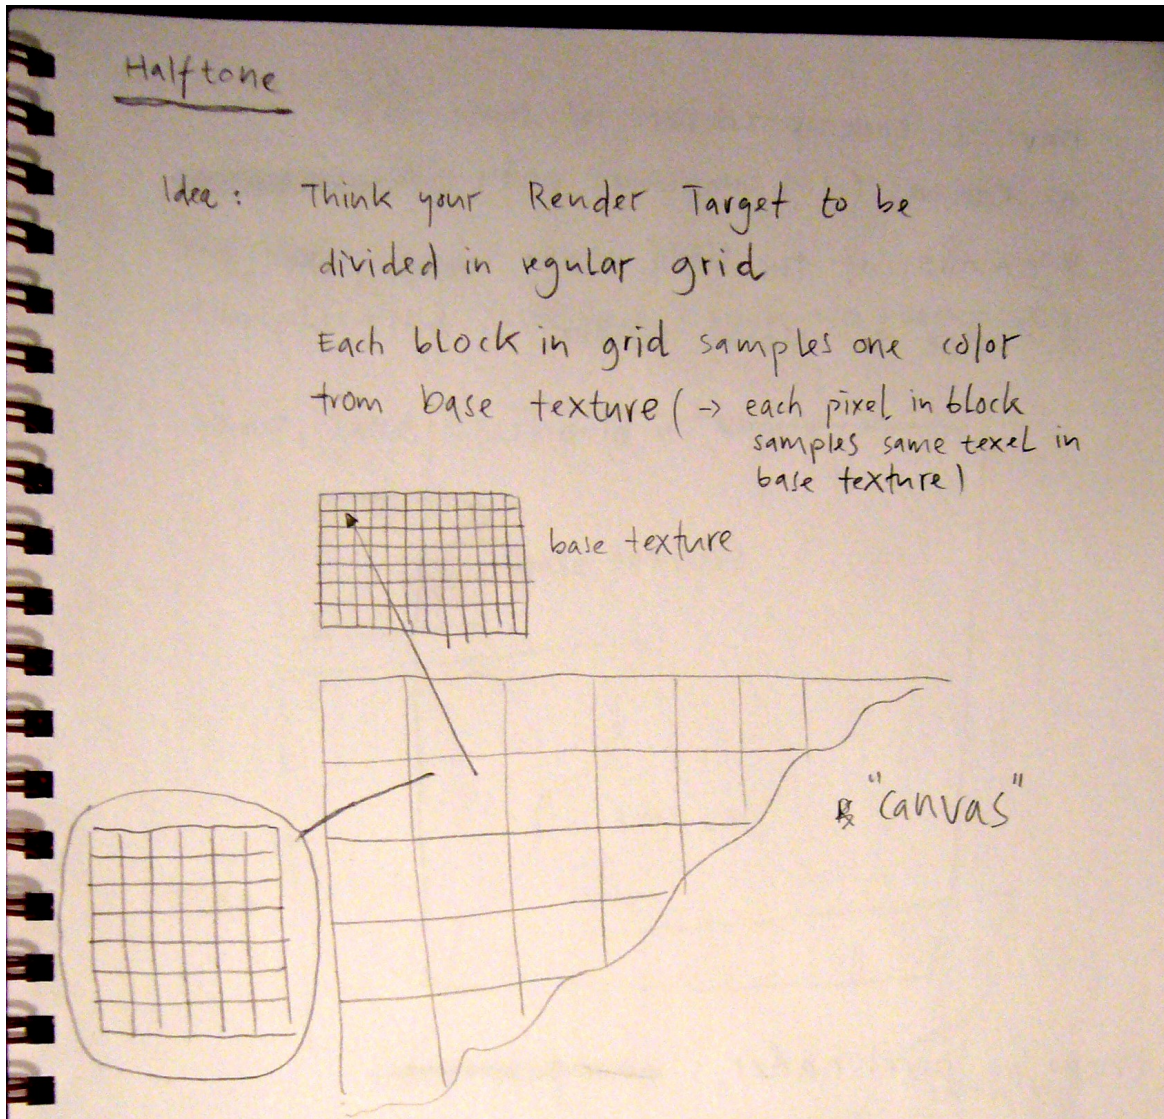 Halftone
Idea: Think your Render Target to be
divided in regular grid
Each block in grid samples one color
from base texture (→ each pixel in block
samples same texel in
base texture)
base texture
"canvas"